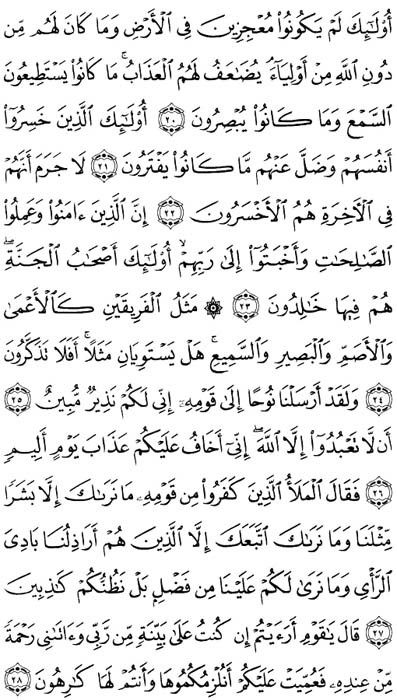 أُوْلَـٰٓئِكَ لَمْ يَكُونُواْ مُعْجِزِينَ فِى ٱلْأَرْضِ وَمَا كَانَ لَهُم مِّن
دُونِ ٱللَّهِ مِنْ أَوْلِيَآءَۘ يُضَـٰعَفُ لَهُمُ ٱلْعَذَابُۚ مَا كَانُواْ يَسْتَطِيعُونَ
ٱلسَّمْعَ وَمَا كَانُواْ يُبْصِرُونَ ٢٠ أُوْلَـٰٓئِكَ ٱلَّذِينَ خَسِرُوٓاْ
أَنفُسَهُمْ وَضَلَّ عَنْهُم مَّا كَانُواْ يَفْتَرُونَ ٢١ لَا جَرَمَ أَنَّهُمْ
فِى ٱلْـَٔاخِرَةِ هُمُ ٱلْأَخْسَرُونَ ٢٢ إِنَّ ٱلَّذِينَ ءَامَنُواْ وَعَمِلُواْ
ٱلصَّـٰلِحَـٰتِ وَأَخْبَتُوٓاْ إِلَىٰ رَبِّهِمْ أُوْلَـٰٓئِكَ أَصْحَـٰبُ ٱلْجَنَّةِۖ
هُمْ فِيهَا خَـٰلِدُونَ ٢٣ ۞ مَثَلُ ٱلْفَرِيقَيْنِ كَٱلْأَعْمَىٰ
وَٱلْأَصَمِّ وَٱلْبَصِيرِ وَٱلسَّمِيعِۚ هَلْ يَسْتَوِيَانِ مَثَلًاۚ أَفَلَا تَذَكَّرُونَ
٢٤ وَلَقَدْ أَرْسَلْنَا نُوحًا إِلَىٰ قَوْمِهِۦٓ إِنِّى لَكُمْ نَذِيرٌ مُّبِينٌ ٢٥
أَن لَّا تَعْبُدُوٓاْ إِلَّا ٱللَّهَۖ إِنِّىٓ أَخَافُ عَلَيْكُمْ عَذَابَ يَوْمٍ أَلِيمٍ
٢٦ فَقَالَ ٱلْمَلَأُ ٱلَّذِينَ كَفَرُواْ مِن قَوْمِهِۦ مَا نَرَىٰكَ إِلَّا بَشَرًا
مِّثْلَنَا وَمَا نَرَىٰكَ ٱتَّبَعَكَ إِلَّا ٱلَّذِينَ هُمْ أَرَاذِلُنَا بَادِىَ
ٱلرَّأْىِ وَمَا نَرَىٰ لَكُمْ عَلَيْنَا مِن فَضْلٍۭ بَلْ نَظُنُّكُمْ كَـٰذِبِينَ
٢٧ قَالَ يَـٰقَوْمِ أَرَءَيْتُمْ إِن كُنتُ عَلَىٰ بَيِّنَةٍ مِّن رَّبِّى وَءَاتَىٰنِى رَحْمَةً
مِّنْ عِندِهِۦ فَعُمِّيَتْ عَلَيْكُمْ أَنُلْزِمُكُمُوهَا وَأَنتُمْ لَهَا كَـٰرِهُونَ ٢٨